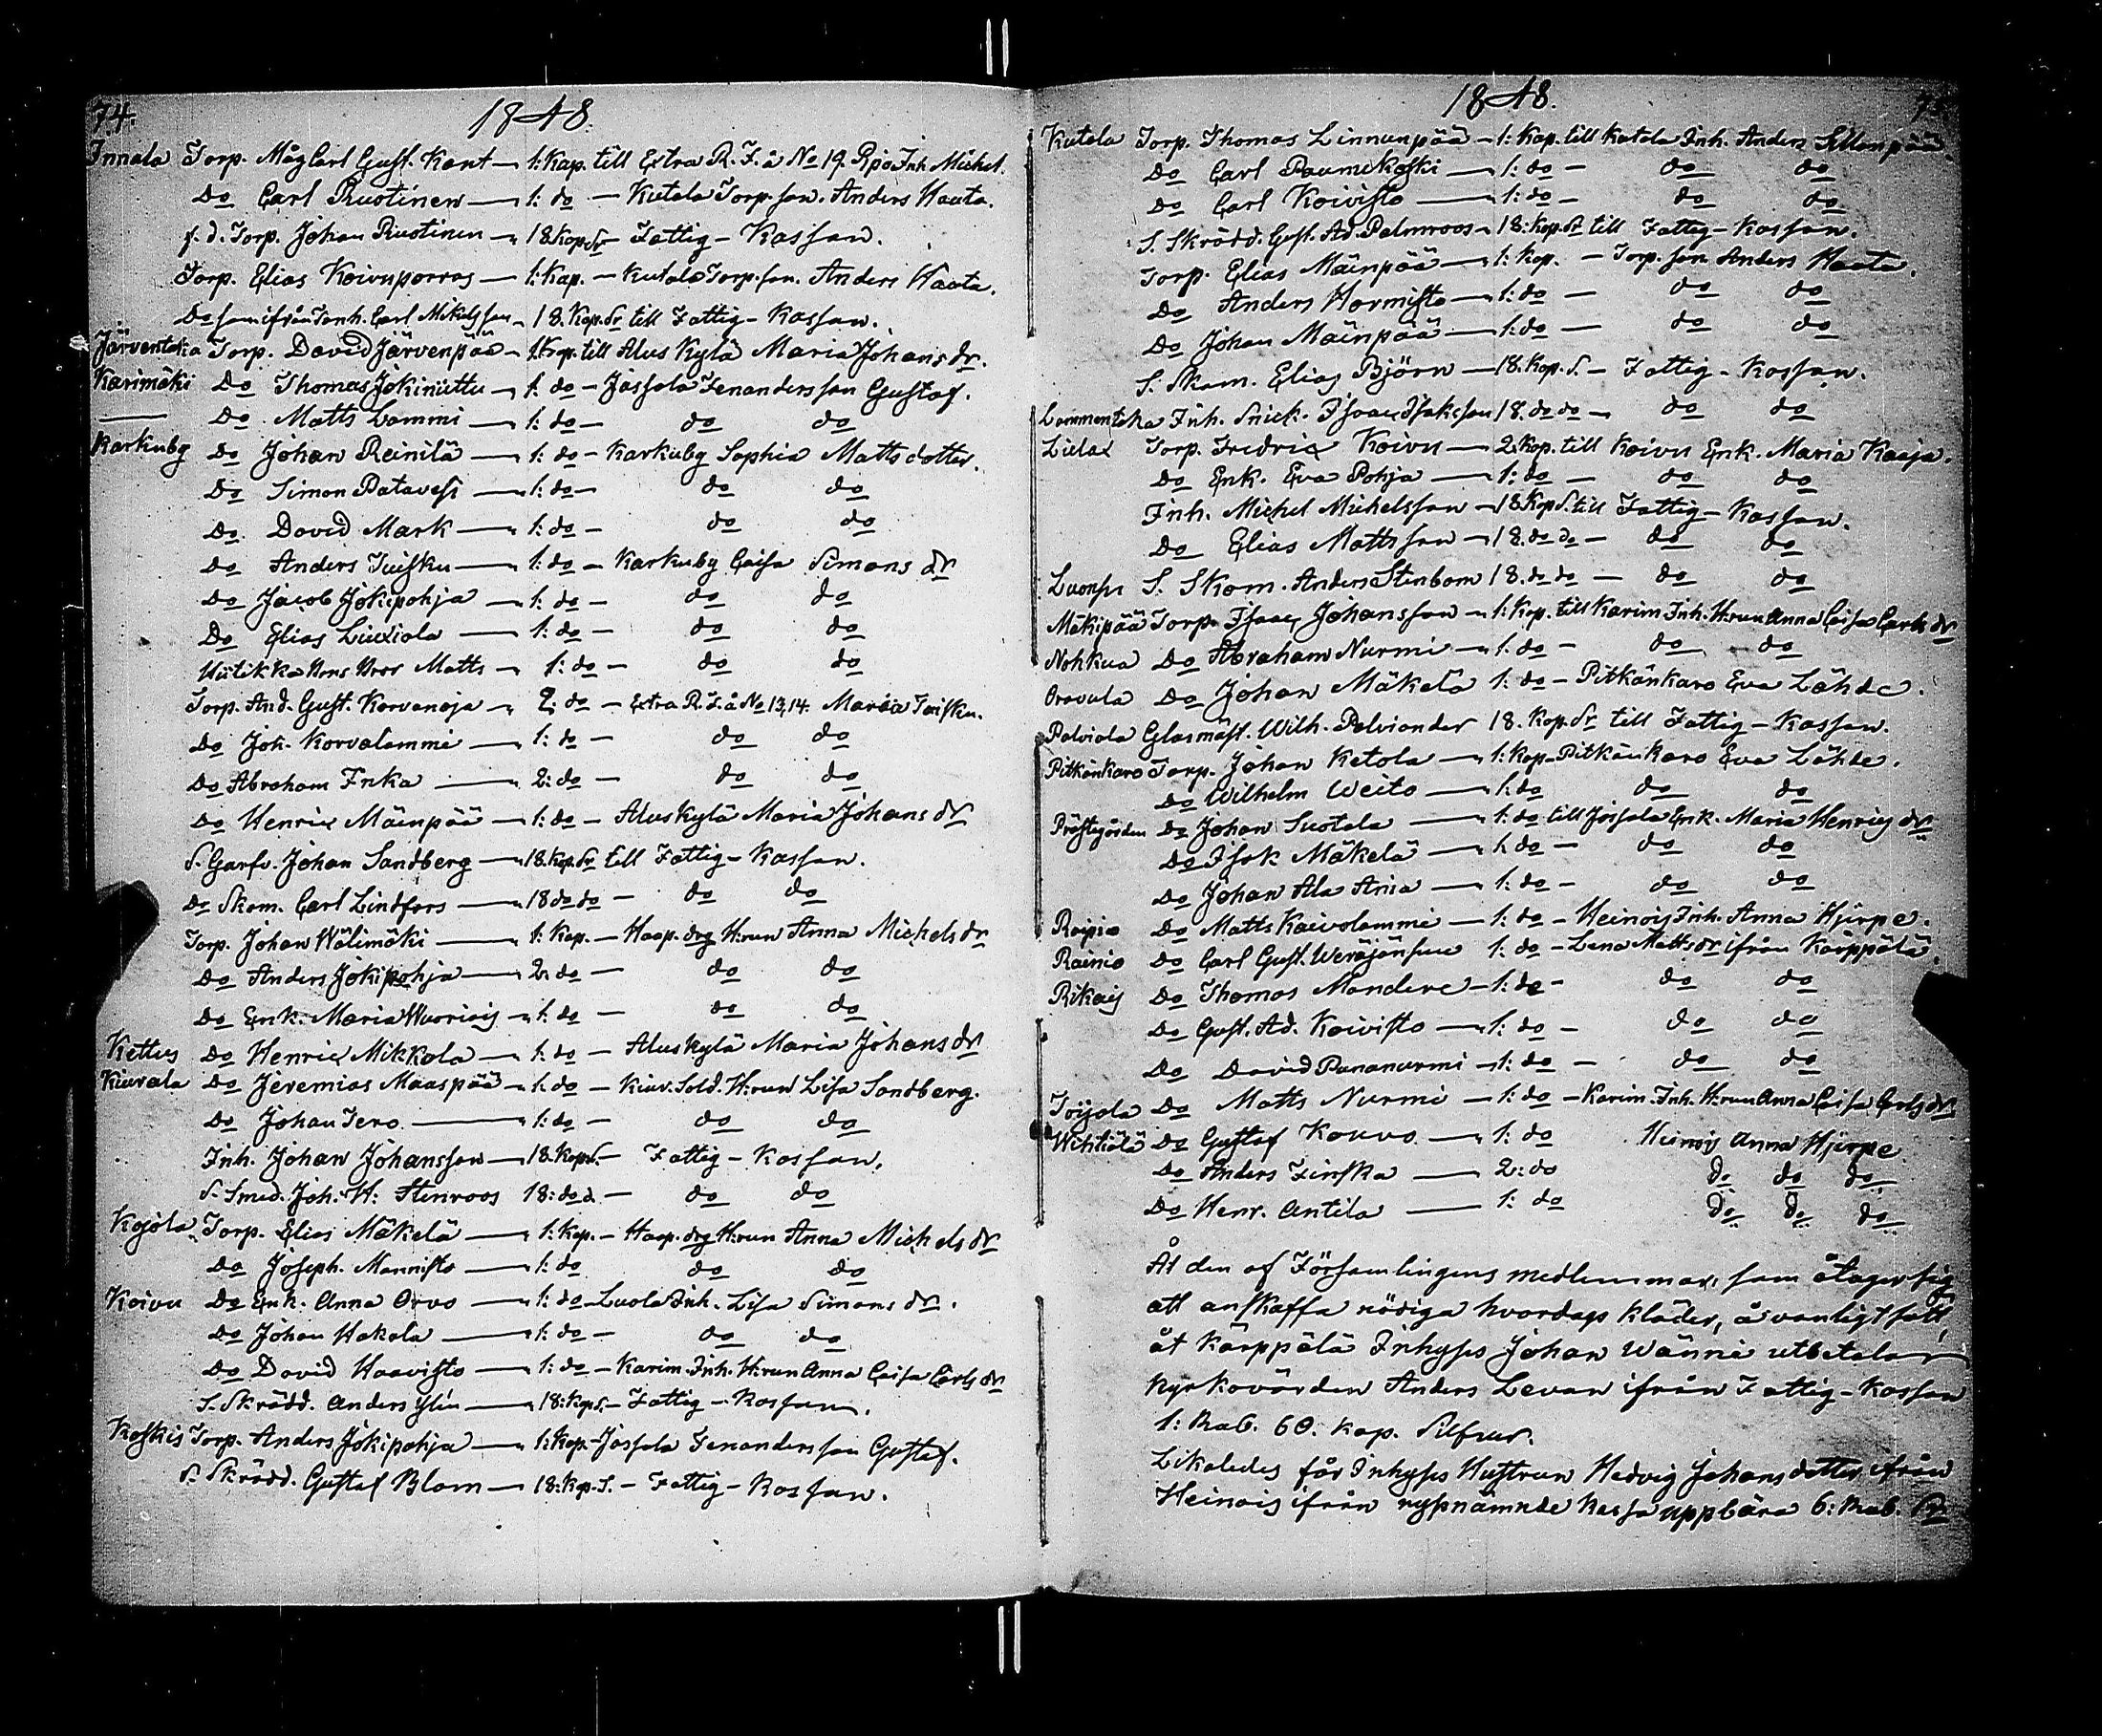 74.
1848.
Innala Torp. Måg Carl Gust. Kant — 1: Kap. till Extra R. F. å No 19. Rpio Inh. Michel.
Do Carl Rustinen — 1: do — Kutala Torp. son. Anders Haata.
f. d. Torp. Johan Rustinen — 18 Kop. Sr — Fattig-Kassan.
Torp. Elias Koivuporras — 1: Kap. — Kutala Torp. son. Anders Haata.
Do som ifrån Inh. Carl Mikelsson — 18. Kop. Sr till Fattig-Kassan.
Järventaka Torp. David Järvenpää — 1. Kap. till Aluskylä Maria Johans dr.
Karimäki Do Thomas Jokiniittu — 1. do — Jassola Fenanders son Gustaf.
Do Matts Lammi — 1: do — do do
Karkuby Do Johan Reinilä — 1: do — Karkuby Sophia Matts dotter.
Do Simon Patavesi — 1: do — do do
Do David Mark — 1: do — do do
Do Anders Tuisku — 1: do — Karkuby Caisa Simons dr
Do Jacob Jokipohja — 1: do — do do
Do Elias Liuxiala — 1: do — do do
Matts — 1: do — do do
Torp. And. Gust. Korvanoja — 2: do — Extra R. F. å No 13, 14. Maria Tuisku.
Do Joh. Korvalammi — 1: do — do do
Do Abraham Inka — 2: do — do do
Do Henric Mäinpää — 1: do — Aluskylä Maria Johans dr
S. Garfv. Johan Sandberg — 18. Kop. Sr till Fattig-Kassan.
Do Skom. Carl Lindfors — 18 do do — do do
Torp. Johan Wälimäki — 1: Kap. — Haap. drg H:run Anna Michels dr
Do Anders Jokipohja — 2. do — do do
Do Enk. Maria Wuoriois — 1: do — do do
Kettus Do Henric Mikkola — 1: do — Aluskylä Maria Johans dr
Kiurala Do Jeremias Maaspää — 1: do — Kiur. Sold. H:run Lisa Sandberg.
Do Johan Tero — 1: do — do do
Inh. Johan Johansson — 18. Kop. S. — Fattig-Kassan.
S. Smed. Joh. H: Stenroos 18: do d. — do do
Kojola Torp. Elias Mäkelä — 1: Kap. — Haap. drg H:run Anna Michels dr
Do Joseph. Mannisto — 1: do do do
Koivu Do Enk. Anna Orvo — 1: do — Luola Inh. Lisa Simons dr.
Do Johan Hakala — 1: do — do do
Do David Haavisto — 1: do — Karim. Inh. H:run Anna Caisa Carls dr
S. Skrädd. Anders Ylin — 18: Kop. S. — Fattig-Kassan.
Koskis Torp. Anders Jokipohja — 1: Kap. — Jassola Fenanders son Gustaf.
S. Skrädd. Gustaf Blom — 18: Kop. S. — Fattig-Kassan.
1848.
75.
Kutala Torp. Thomas Linnunpää — 1: Kap. till Kutala Inh. Anders Sillanpää.
Do Carl Paunukoski — 1: do — do do
Do Carl Koivisto — 1: do — do do
S. Skrädd. Gust. Ad. Palmroos — 18: Kop. Sr till Fattig-Kassan.
Torp. Elias Mäinpää — 1: Kap. — Torp. son Anders Haata.
Do Anders Hormisto — 1: do — do do
Do Johan Mäinpää — 1: do — do do
S. Skom. Elias Björn — 18. Kop. S. — Fattig-Kassan.
Lammentaka Inh. Snick. Isaac Isaksson 18. do do — do do
Lielax Torp. Fredric Koivu — 2. Kap. till Koivu Enk. Maria Kaaja.
Do Enk. Eva Pohja — 1: do — do do
Inh. Michel Michelsson — 18 Kop S. till Fattig-Kassan.
Do Elias Mattsson — 18. do do — do do
S. Skom. Anders Stenbom 18. do do — do do
Mäkipää Torp. Isaac Johansson — 1: Kap. till Karim. Inh. H:run Anna Caisa Carls dr
Nohkua Do Abraham Nurmi — 1: do — do do
Oravula Do Johan Mäkelä 1: do — Pitkänkaro Eva Lähde.
Palviala Glasmäst. Wilh. Palviander 18. Kop. Sr till Fattig-Kassan.
Pitkänkaro Torp. Johan Ketola — 1: Kap — Pitkänkaro Eva Lähde.
Do Wilhelm Weito — 1: do do do
Prästgården Do Johan Suotala — 1: do till Jassola Enk. Maria Henrics dr
Do Isak Mäkelä — 1. do — do do
Do Johan Ala Aria — 1: do — do do
Raipio Do Matts Kaivolammi — 1: do — Heinois Inh. Anna Hjerpe.
Rainio Do Carl Gust. Weräjänsuu 1: do — Lena Matts dr ifrån Karppälä.
Rikais Do Thomas Mandere — 1: do — do do
Do Gust. Ad. Koivisto — 1: do — do do
Do David Punanurmi — 1: do — do do
Toijola Do Matts Nurmi — 1: do — Karim. Inh. H:run Anna Caisa Carls dr
Wihtiälä Do Gustaf Kouvo — 1: do Heinois Anna Hjerpe
Do Anders Finska — 2: do do do do
Do Henr. Antila — 1: do do do do
Åt den af Församlingens medlemmar, som åtager sig
att anskaffa nödiga hvardags kläder, å vanligt sätt,
åt Karppälä Inhyses Johan Wänni utbetalar
Kyrkovärden Anders Levan ifrån Fattig-Kassan
1: Rub. 60. kop. Silfver.
Likaledes får Inhyses Hustrun Hedvig Johansdotter ifrån
Heinois ifrån nyssnämnde Kassa uppbära 6: Rub. Sr